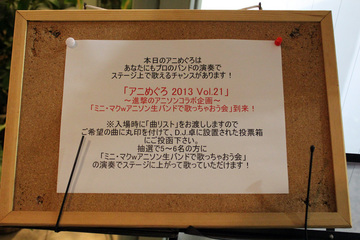 本日のアニめぐろは
あなたにもプロのバンドの演奏で
ステージ上で歌えるチャンスがあります!
「アニめぐろ 2013 Vol.21」
~進撃のアニソンコラボ企画~
「ミニ・マクwアニソン生バンドで歌っちゃおう会」到来!
※入場時に「曲リスト」をお渡ししますので
ご希望の曲に丸印を付けて、D.J.卓に設置された投票箱
にご投函下さい。
抽選で5~6名の方に
「ミニ・マクwアニソン生バンドで歌っちゃおう会」
の演奏でステージに上がって歌っていただきます!